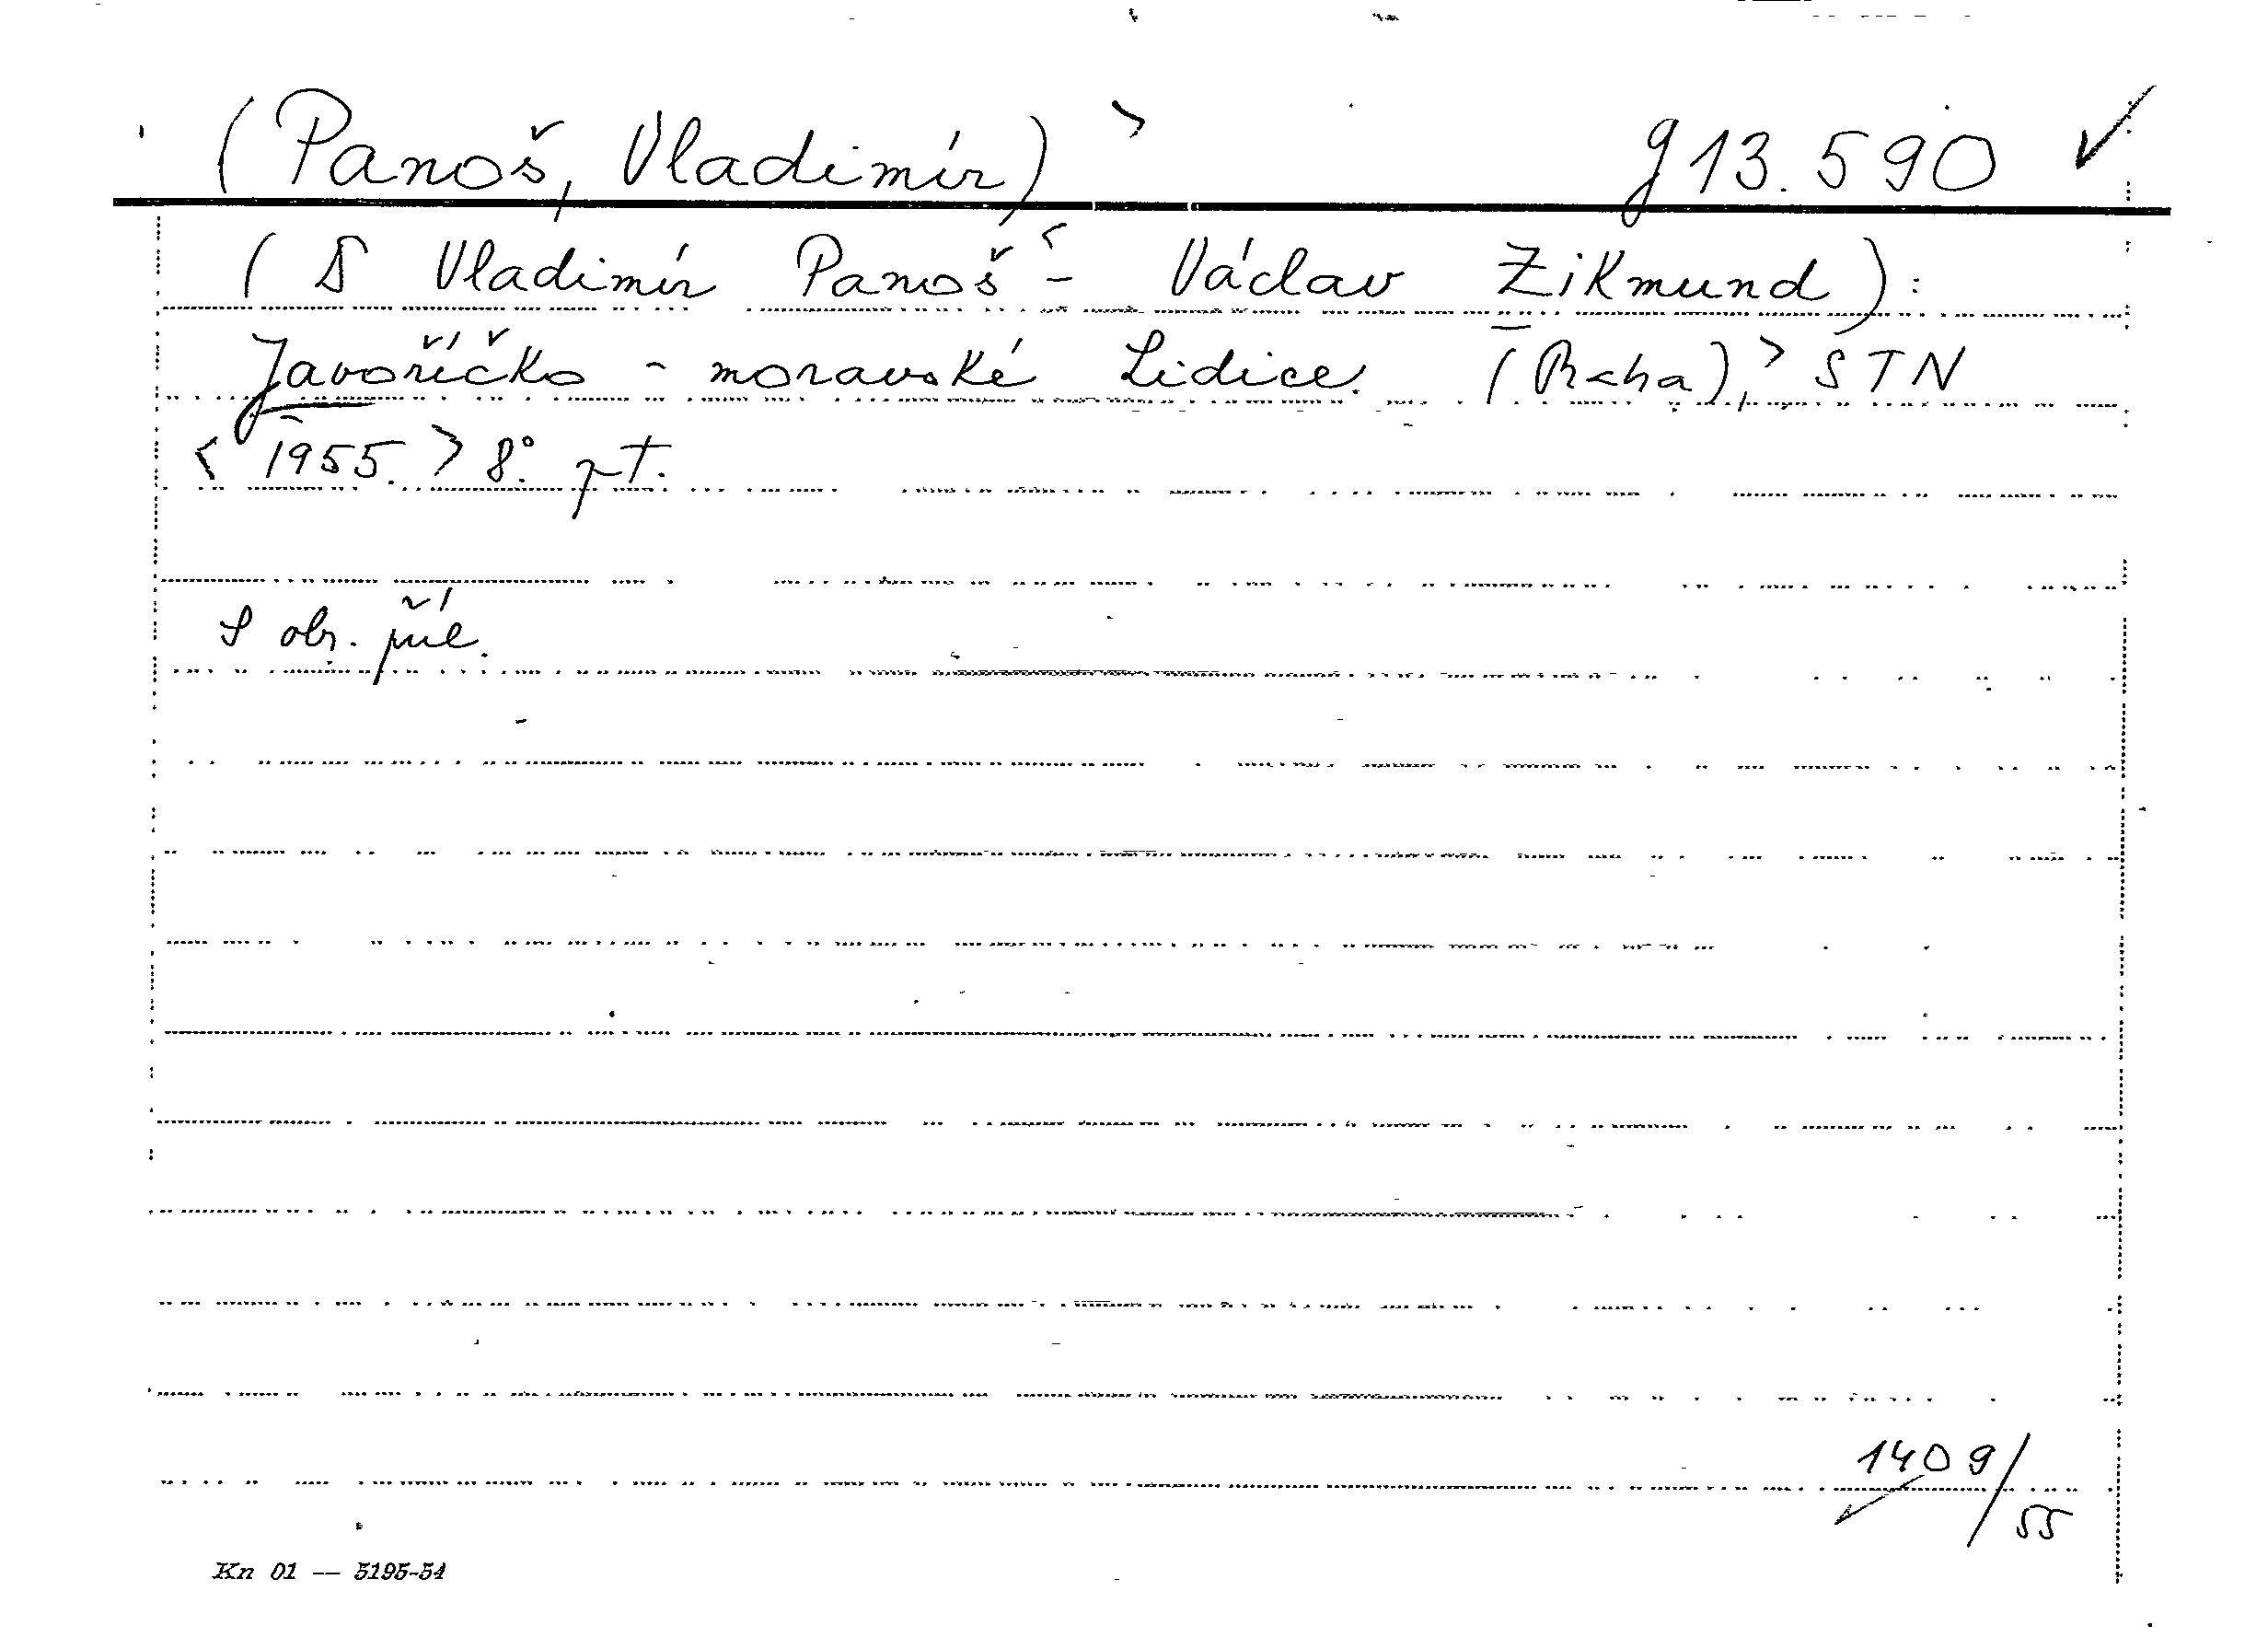 (Panoš, Vladimír) > g 13.590 ✓
(D Vladimír Panoš < - Václav Zikmund):
Javoříčko - moravské Lidice. (Praha), > STN
< 1955. > 8°. pt.
S obr. příl.
1409/55
Kn 01 — 5195-54